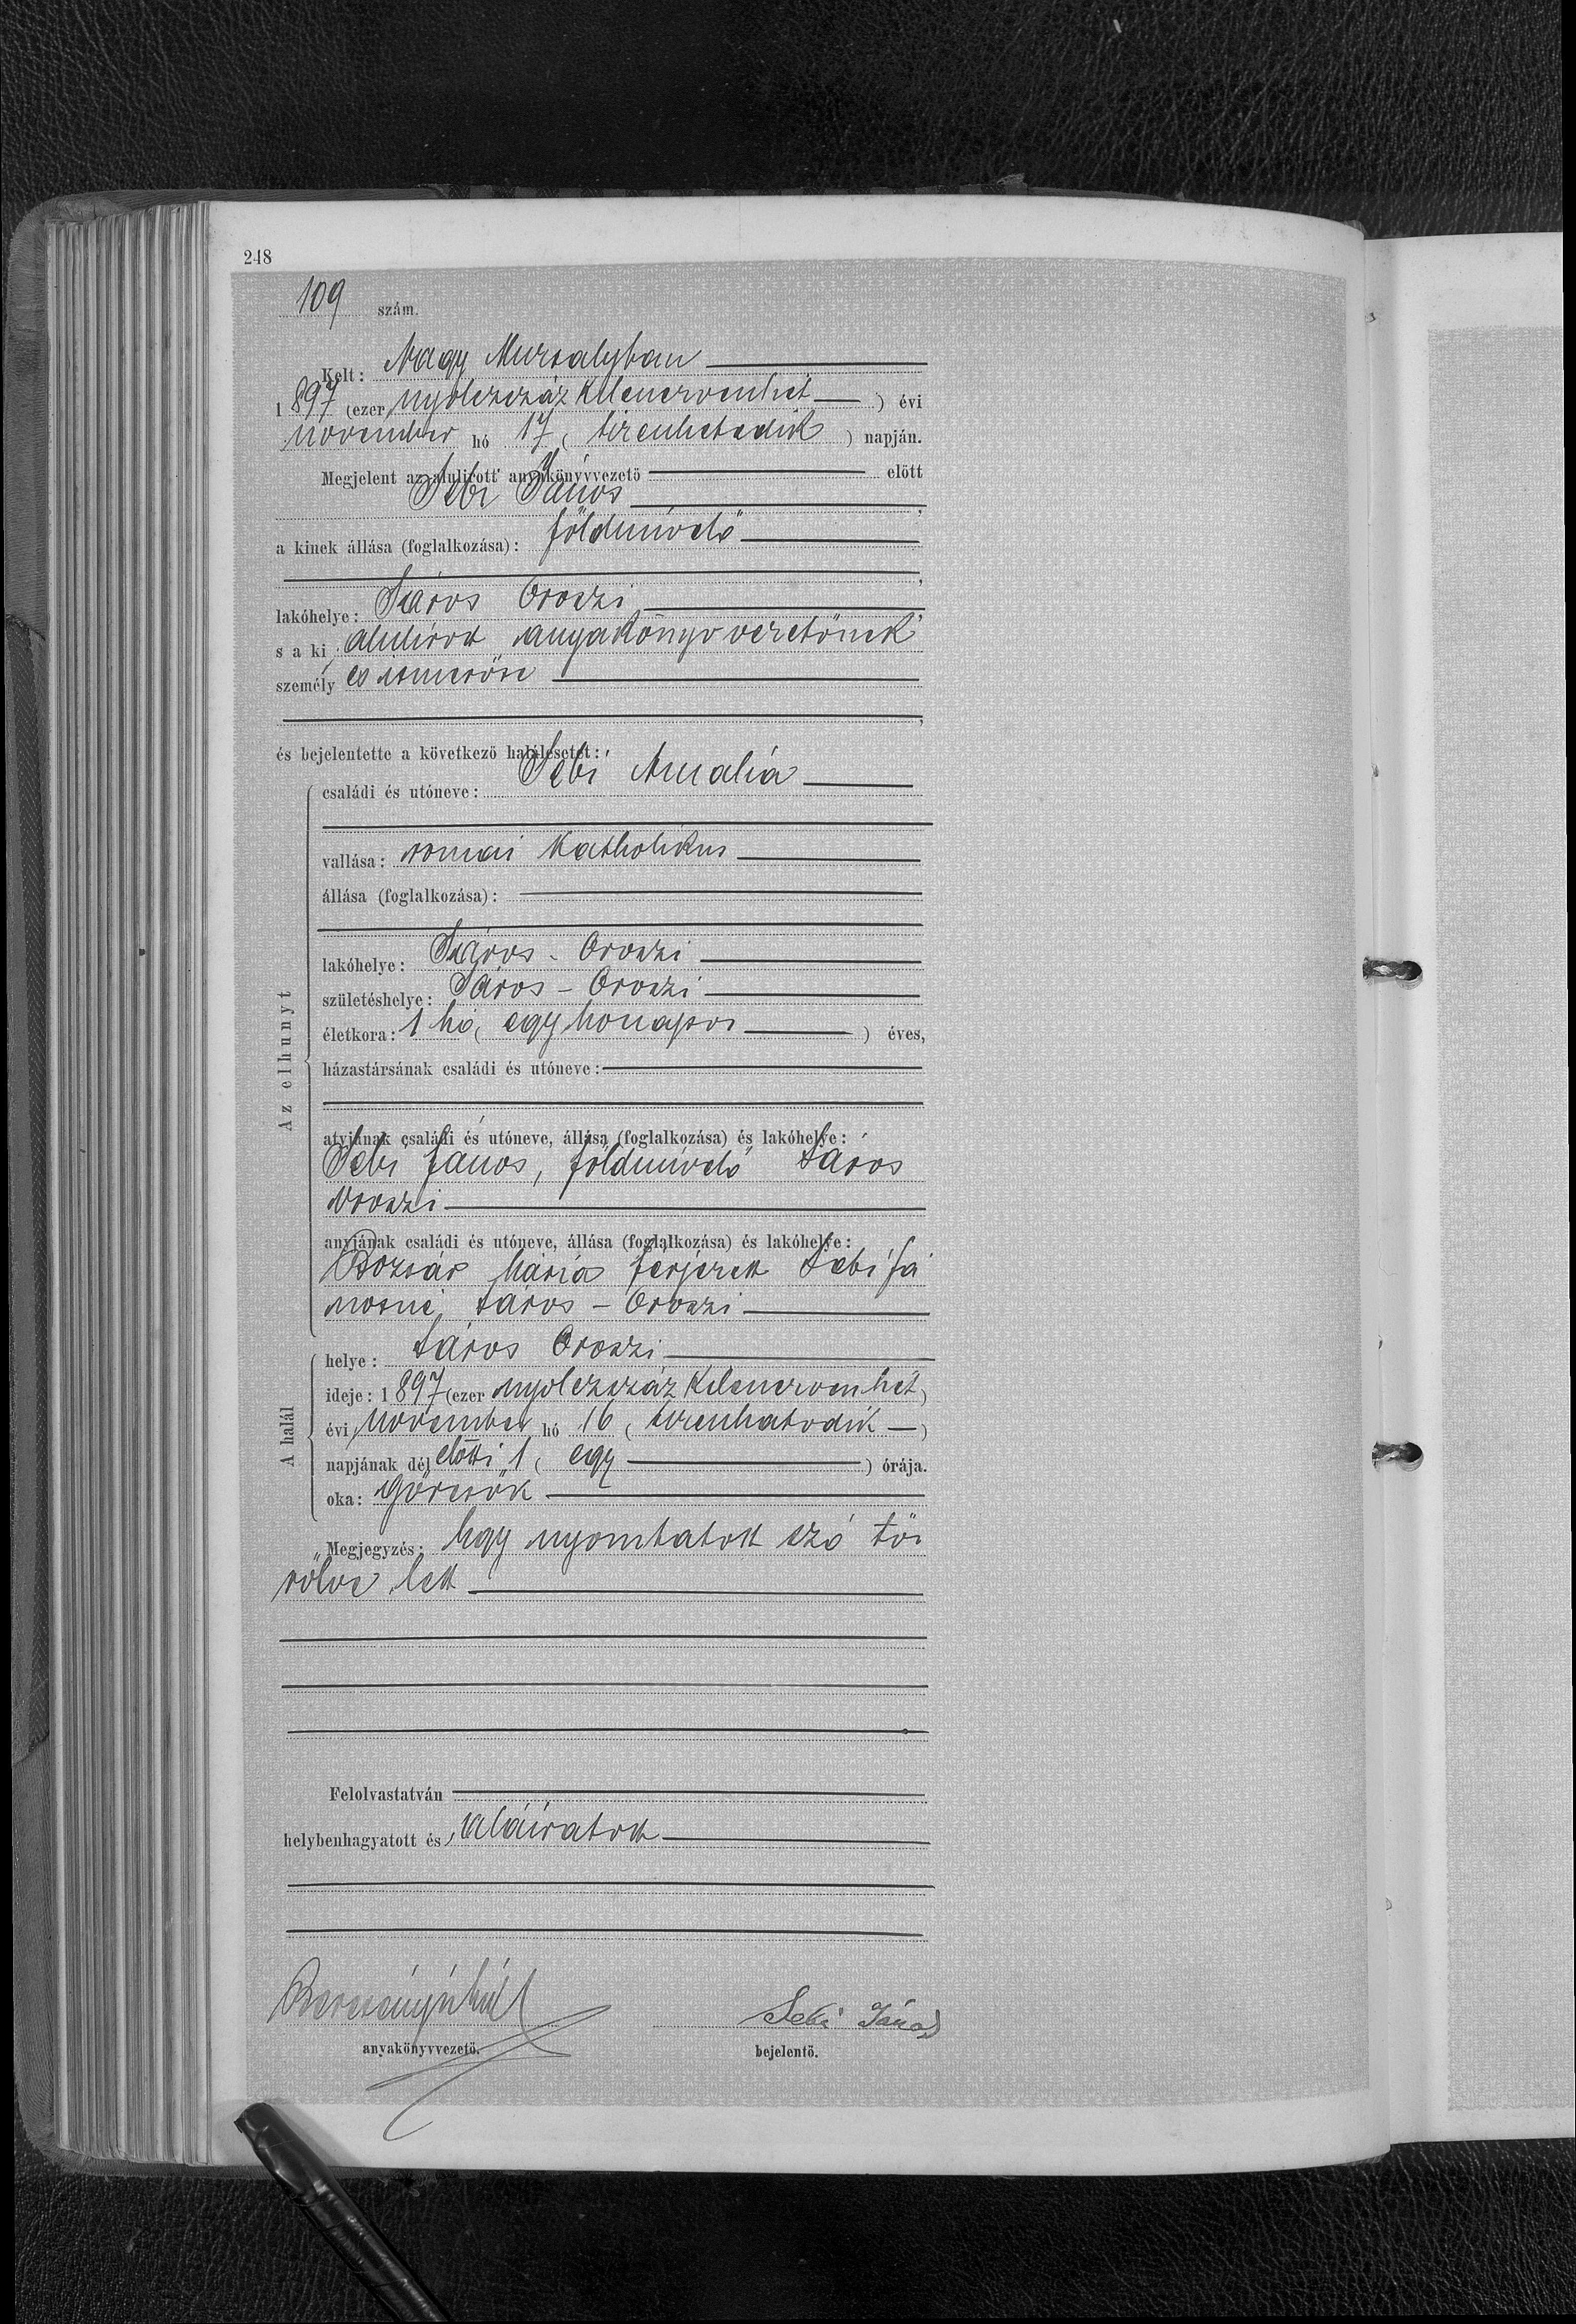 248
109 szám.
Kelt: Nagy Muzsalyban
1897 (ezer nyolczszáz kilenczvenhét) évi
november hó 17 (tizenhetedik) napján.
Megjelent az alulirott anyakönyvvezető előtt
Sebi János,
a kinek állása (foglalkozása): földmívelő
lakóhelye: Sáros Oroszi,
s a ki alulírott anyakönyvvezetőnek
személyes ismerőse
és bejelentette a következő halálesetet:
Az elhunyt
családi és utóneve: Sebi Amalia
vallása: romai katholikus
állása (foglalkozása):
lakóhelye: Sáros - Oroszi
születéshelye: Sáros - Oroszi
életkora: 1 hó (egy honapos) éves,
házastársának családi és utóneve:
atyjának családi és utóneve, állása (foglalkozása) és lakóhelye:
Sebi János, földmívelő Sáros
Oroszi
anyjának családi és utóneve, állása (foglalkozása) és lakóhelye:
Mária férjezett Sebi Já
nosné, Sáros - Oroszi
A halál
helye: Sáros Oroszi
ideje: 1897 (ezer nyolczszáz kilenczvenhét)
évi november hó 16 (tizenhatodik)
napjának dél előtti 1 (egy) órája.
oka: Görcsök
Megjegyzés: Egy nyomtatott szó tö
rölve lett
Felolvastatván
helybenhagyatott és aláíratott
anyakönyvvezető.
Sebi János
bejelentő.